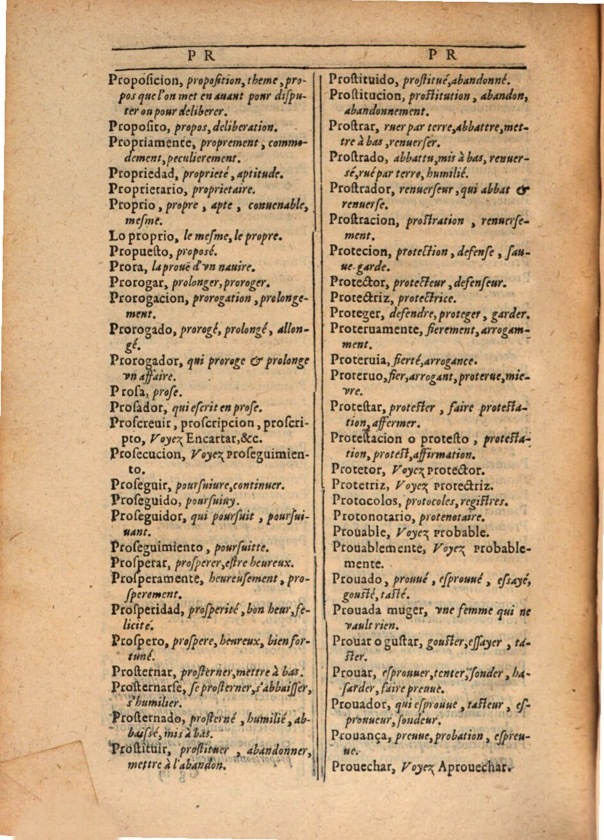 PR
Proposicion, proposition, theme, pro-
pos que l'on met en auant pour dispu-
ter ou pour deliberer.
Proposito, propos, deliberation.
Propriamente, proprement, commo-
dement, peculierement.
Propriedad, proprieté, aptitude.
Proprietario, proprietaire.
Proprio, propre, apte, conuenable,
mesme.
Lo proprio, le mesme, le propre.
Propuesto, proposé.
Prora, la prouë d'vn nauire.
Prorogar, prolonger, proroger.
Prorogacion, prorogation, prolonge-
ment.
Prorogado, prorogé, prolongé, allon-
gé.
Prorogador, qui proroge & prolonge
vn affaire.
Prosa, prose.
Prosador, qui escrit en prose.
Proscreuir, proscripcion, proscri-
pto, Voyez Encartar, &c.
Prosecucion, Voyez Proseguimien-
to.
Proseguir, poursuiure, continuer.
Proseguido, poursuiuy.
Proseguidor, qui poursuit, poursui-
uant.
Proseguimiento, poursuitte.
Prosperar, prosperer, estre heureux.
Prosperamente, heureusement, pro-
sperement.
Prosperidad, prosperité, bon heur, fe-
licité.
Prospero, prospere, heureux, bien for-
tuné.
Prosternar, prosterner, mettre à bas.
Prosternarse, se prosterner, s'abbaisser,
s'humilier.
Prosternado, prosterné, humilié, ab-
baissé, mis à bas.
Prostituir, prostituer, abandonner,
mettre à l'abandon.
PR
Prostituido, prostitué, abandonné.
Prostitucion, prostitution, abandon,
abandonnement.
Prostrar, ruer par terre, abbattre, met-
tre à bas, renuerser.
Prostrado, abbattu, mis à bas, renuer-
sé, rué par terro, humilié.
Prostrador, renuerseur, qui abbat &
renuerse.
Prostracion, prostration, renuerse-
ment.
Protecion, protection, defense, sau-
ue-garde.
Protector, protecteur, defenseur.
Protectriz, protectrice.
Proteger, defendre, proteger, garder.
Proteruamente, fierement, arrogam-
ment.
Proteruia, fierté, arrogance.
Proteruo, fier, arrogant, proterue, mie-
vre.
Protestar, protester, faire protesta-
tion, affermer.
Protestacion o protesto, protesta-
tion, protest, affirmation.
Protetor, Voyez Protector.
Protetriz, Voyez Protectriz.
Protocolos, protocoles, registres.
Protonotario, protenotaire.
Prouable, Voyez Probable.
Prouablemente, Voyez Probable-
mente.
Prouado, prouué, esprouué, essayé,
gousté, tasté.
Prouada muger, vne femme qui ne
vault rien.
Prouar o gustar, gouster, essayer, ta-
ster.
Prouar, esprouuer, tenter, sonder, ha-
sarder, faire preuue.
Prouador, qui esprouue, tasteur, es-
prouueur, sondeur.
Prouança, preuue, probation, espreu-
ue.
Prouechar, Voyez Aprouechar.